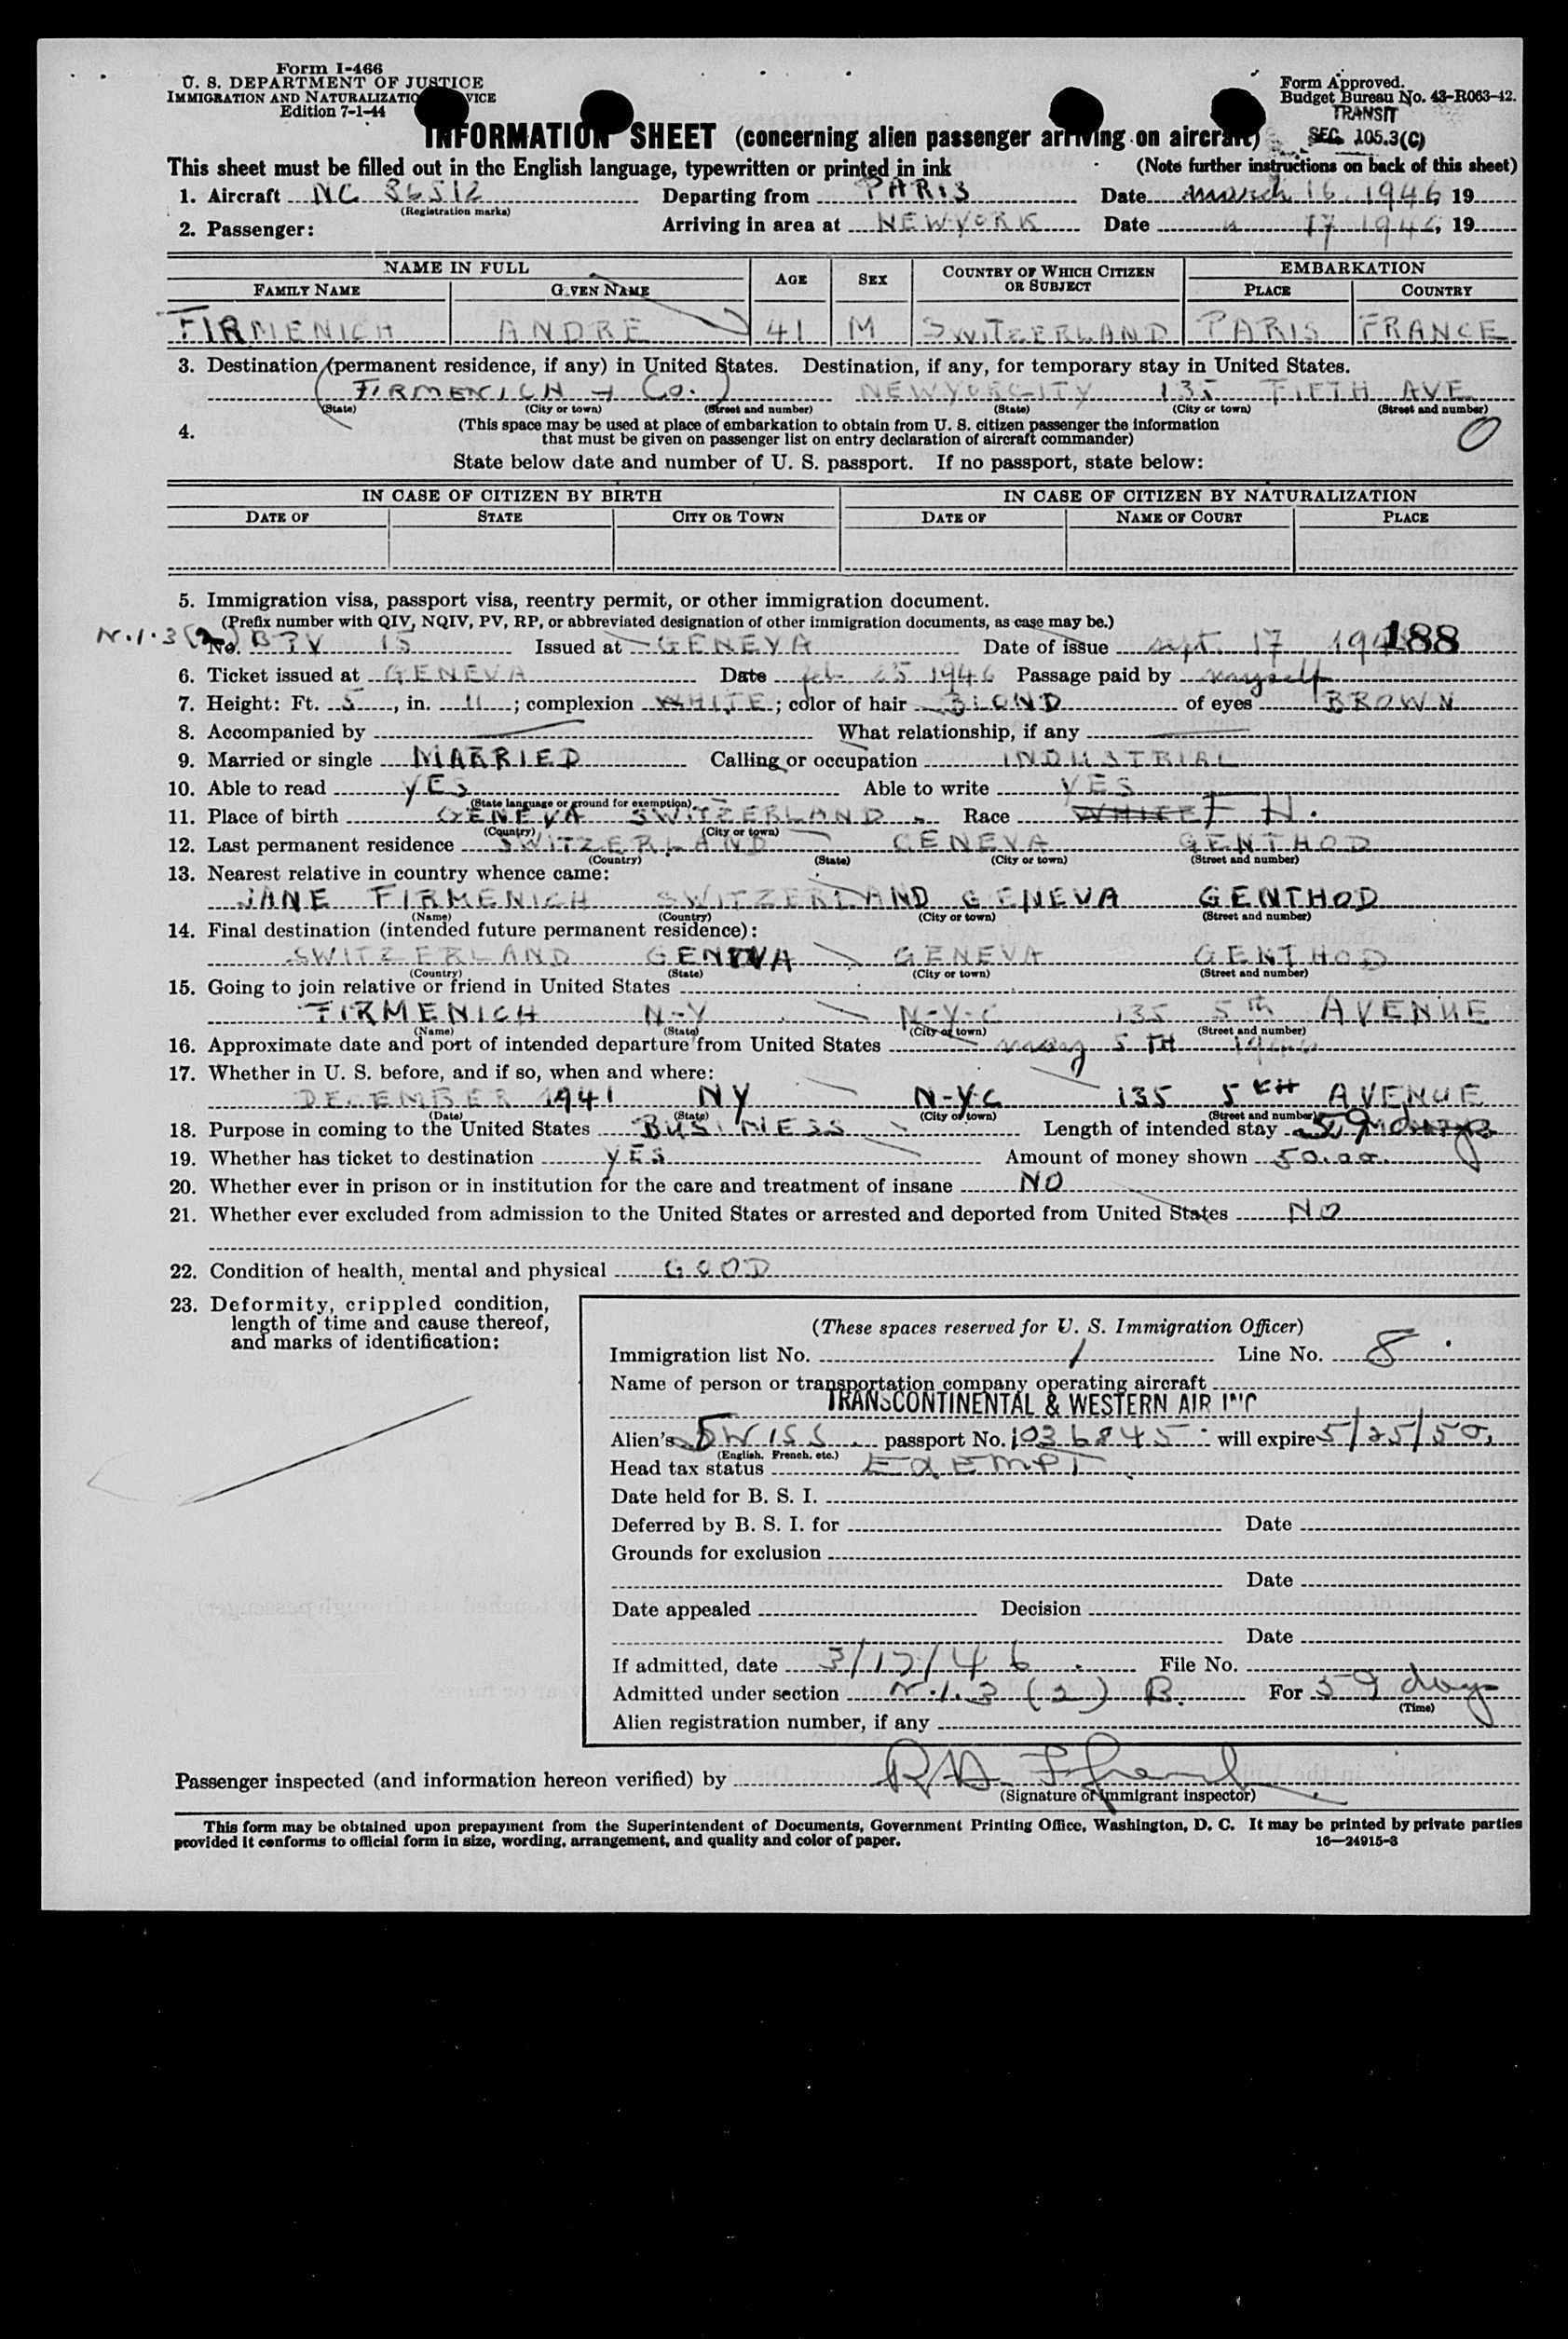 Form I-466
U. S. DEPARTMENT OF JUSTICE
IMMIGRATION AND NATURALIZATION SERVICE
Edition 7-1-44
Form Approved.
Budget Bureau No. 43-R063-42.
TRANSIT
SEC. 105.3(C)
INFORMATION SHEET (concerning alien passenger arriving on aircraft)
This sheet must be filled out in the English language, typewritten or printed in ink (Note further instructions on back of this sheet)
1. Aircraft NC 86512 Departing from PARIS Date march 16 1946, 19
(Registration marks)
2. Passenger: Arriving in area at NEWYORK Date " 17 1946, 19
NAME IN FULL AGE SEX COUNTRY OF WHICH CITIZEN OR SUBJECT EMBARKATION
FAMILY NAME GIVEN NAME PLACE COUNTRY
FIRMENICH ANDRE 41 M SWITZERLAND PARIS FRANCE
3. Destination (permanent residence, if any) in United States. Destination, if any, for temporary stay in United States.
(FIRMENICH + Co.) NEWYORCITY 135 FIFTH AVE
(State) (City or town) (Street and number) (State) (City or town) (Street and number)
4. (This space may be used at place of embarkation to obtain from U. S. citizen passenger the information
that must be given on passenger list on entry declaration of aircraft commander)
0
State below date and number of U. S. passport. If no passport, state below:
IN CASE OF CITIZEN BY BIRTH IN CASE OF CITIZEN BY NATURALIZATION
DATE OF STATE CITY OR TOWN DATE OF NAME OF COURT PLACE
5. Immigration visa, passport visa, reentry permit, or other immigration document.
(Prefix number with QIV, NQIV, PV, RP, or abbreviated designation of other immigration documents, as case may be.)
N.1.3(2) No. BPV 15 Issued at GENEVA Date of issue sept. 17 194 188
6. Ticket issued at GENEVA Date feb 25 1946 Passage paid by myself
7. Height: Ft. 5, in. 11; complexion WHITE; color of hair BLOND of eyes BROWN
8. Accompanied by What relationship, if any
9. Married or single MARRIED Calling or occupation INDUSTRIAL
10. Able to read YES Able to write YES
(State language or ground for exemption)
11. Place of birth GENEVA SWITZERLAND Race WHITE FH.
(Country) (City or town)
12. Last permanent residence SWITZERLAND GENEVA GENTHOD
(Country) (State) (City or town) (Street and number)
13. Nearest relative in country whence came:
JANE FIRMENICH SWITZERLAND GENEVA GENTHOD
(Name) (Country) (City or town) (Street and number)
14. Final destination (intended future permanent residence):
SWITZERLAND GENEVA GENEVA GENTHOD
(Country) (State) (City or town) (Street and number)
15. Going to join relative or friend in United States
FIRMENICH N-Y N-Y-C 135 5th AVENUE
(Name) (State) (City or town) (Street and number)
16. Approximate date and port of intended departure from United States may 5 TH 1946
17. Whether in U. S. before, and if so, when and where:
DECEMBER 1941 NY N-Y-C 135 5th AVENUE
(Date) (State) (City or town) (Street and number)
18. Purpose in coming to the United States BUSINESS Length of intended stay 59
19. Whether has ticket to destination YES Amount of money shown 50.00
20. Whether ever in prison or in institution for the care and treatment of insane NO
21. Whether ever excluded from admission to the United States or arrested and deported from United States NO
22. Condition of health, mental and physical GOOD
23. Deformity, crippled condition,
length of time and cause thereof,
and marks of identification:
(These spaces reserved for U. S. Immigration Officer)
Immigration list No. 1 Line No. 8
Name of person or transportation company operating aircraft
TRANSCONTINENTAL & WESTERN AIR INC
Alien's SWISS passport No. 1036845 will expire 5/25/50
(English, French, etc.)
Head tax status EXEMPT
Date held for B. S. I.
Deferred by B. S. I. for Date
Grounds for exclusion
Date
Date appealed Decision
Date
If admitted, date 3/17/46 File No.
Admitted under section N.1.3(2) B. For 59 days
(Time)
Alien registration number, if any
Passenger inspected (and information hereon verified) by
(Signature of immigrant inspector)
This form may be obtained upon prepayment from the Superintendent of Documents, Government Printing Office, Washington, D. C. It may be printed by private parties
provided it conforms to official form in size, wording, arrangement, and quality and color of paper. 16—24915-3